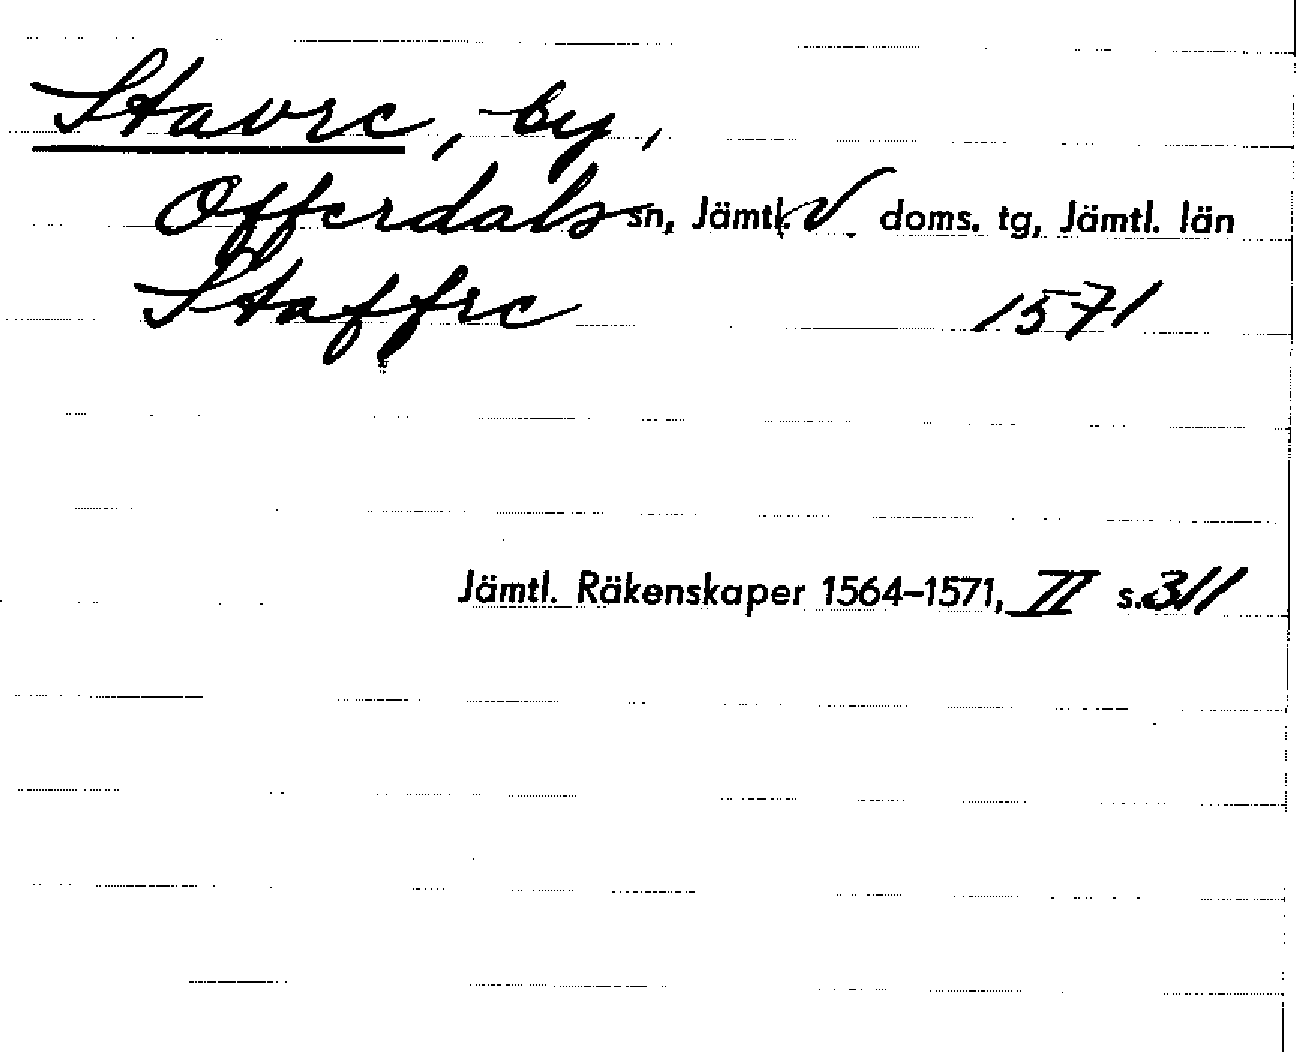 Stavre, by,
Offerdals sn, Jämtl. V doms. tg, Jämtl. län
Staffre 1571
Jämtl. Räkenskaper 1564–1571, II s. 311